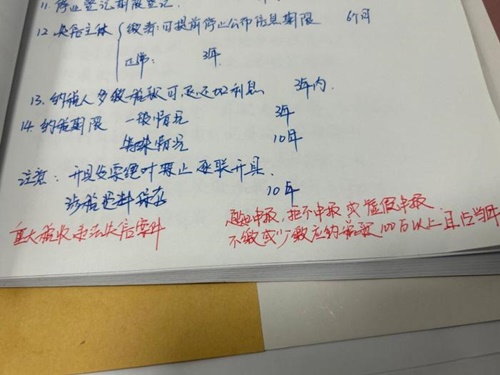 11. 停止登记期限登记.
12. 失信主体 缴清可提前停止公布信息期限 6个月
正常: 3年
13. 纳税人多缴税款可退还加利息 3年内.
14. 纳税期限 一般情况 3年
特殊情况 10年
注意: 开具发票 禁止 联开具.
涉税资料保存 10年
重大税收违法失信案件 申报, 拒不申报或虚假申报
不缴或少缴应纳税款100万以上且占当年